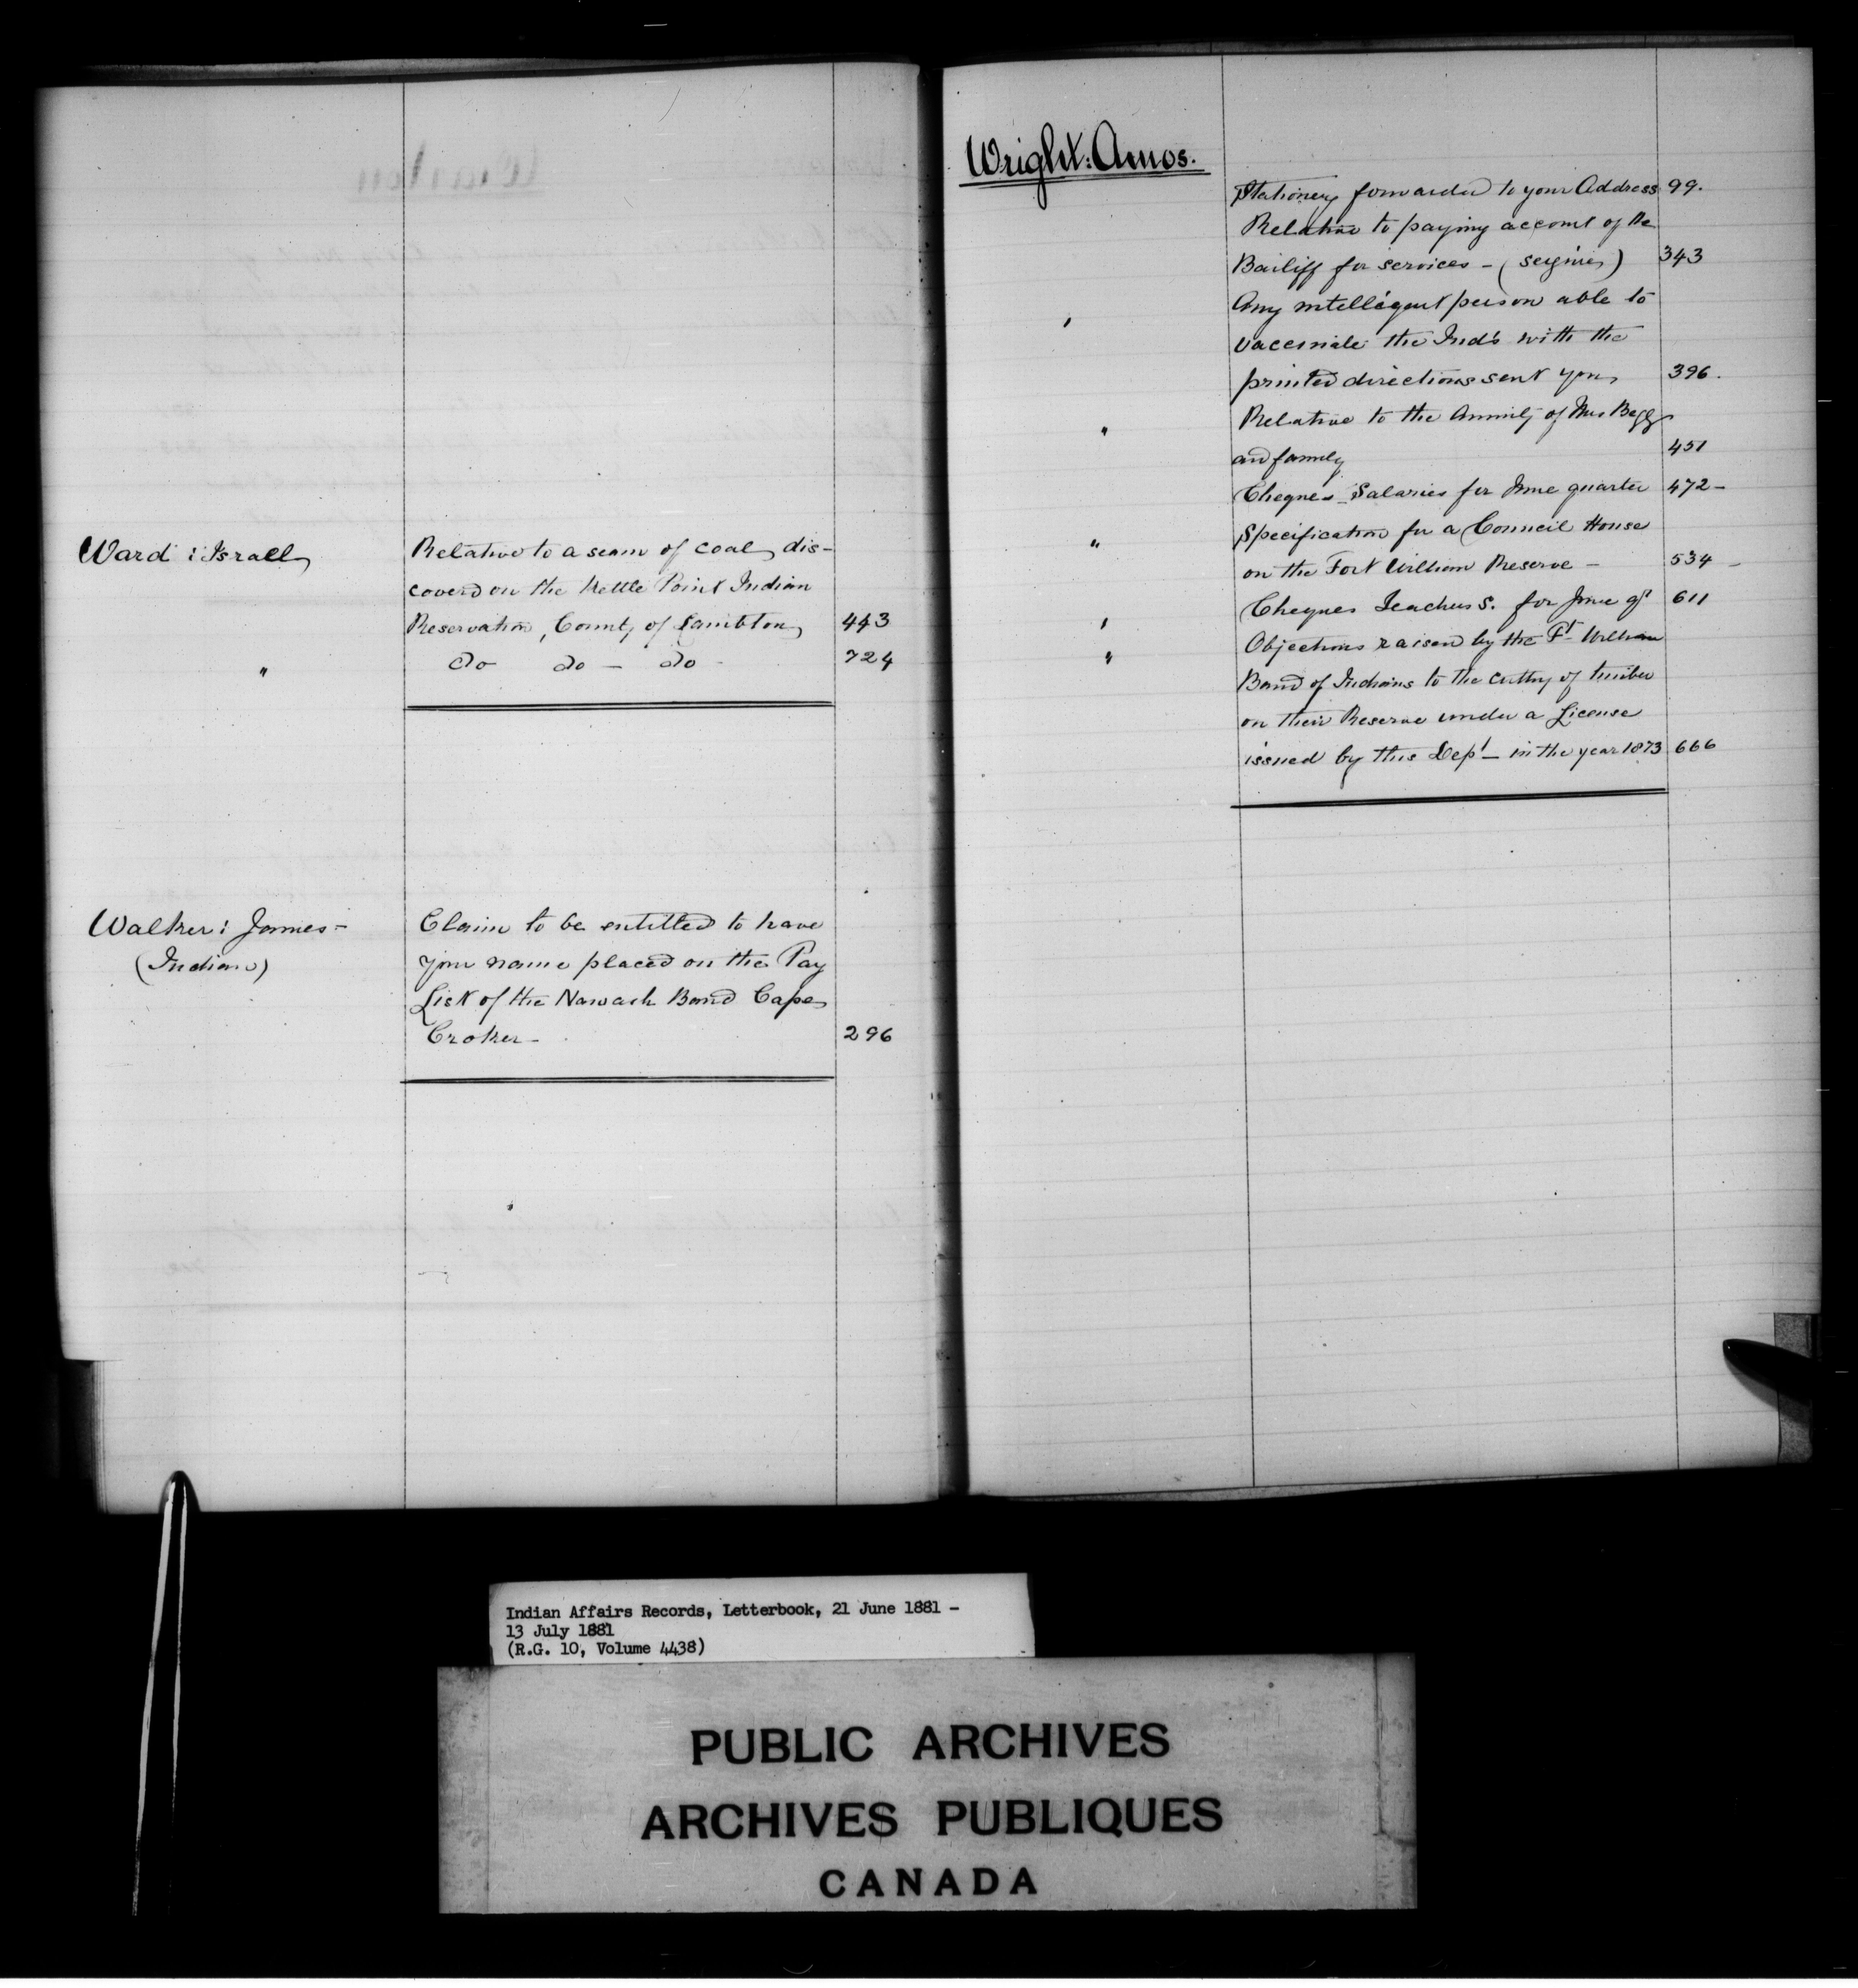 Ward : Israel
Relative to a seam of coal dis-
coverd on the Kettle Point Indian
Reservation, County of Lambton 443
" do do - do - 724
Walker : James -
(Indian)
Claim to be entitled to have
your name placed on the Pay
List of the Nawash Band Cape
Croker - 296
Wright : Amos.
Stationery forwarded to your Address 99.
Relative to paying account of the
Bailiff for services - ( ) 343
Any intelligent person able to
vaccinate the Inds with the
printed directions sent you 396.
" Relative to the Annuity of Mrs Begg
and family 451
Cheques Salaries for June quarter 472 -
" Specification for a Council House
on the Fort William Reserve - 534 -
" Cheques Teachers S. for June qr 611
" Objections raised by the Ft William
Band of Indians to the cutting of timber
on their Reserve under a License
issued by this Dept - in the year 1873 666
Indian Affairs Records, Letterbook, 21 June 1881 -
13 July 1881
(R.G. 10, Volume 4438)
PUBLIC ARCHIVES
ARCHIVES PUBLIQUES
CANADA